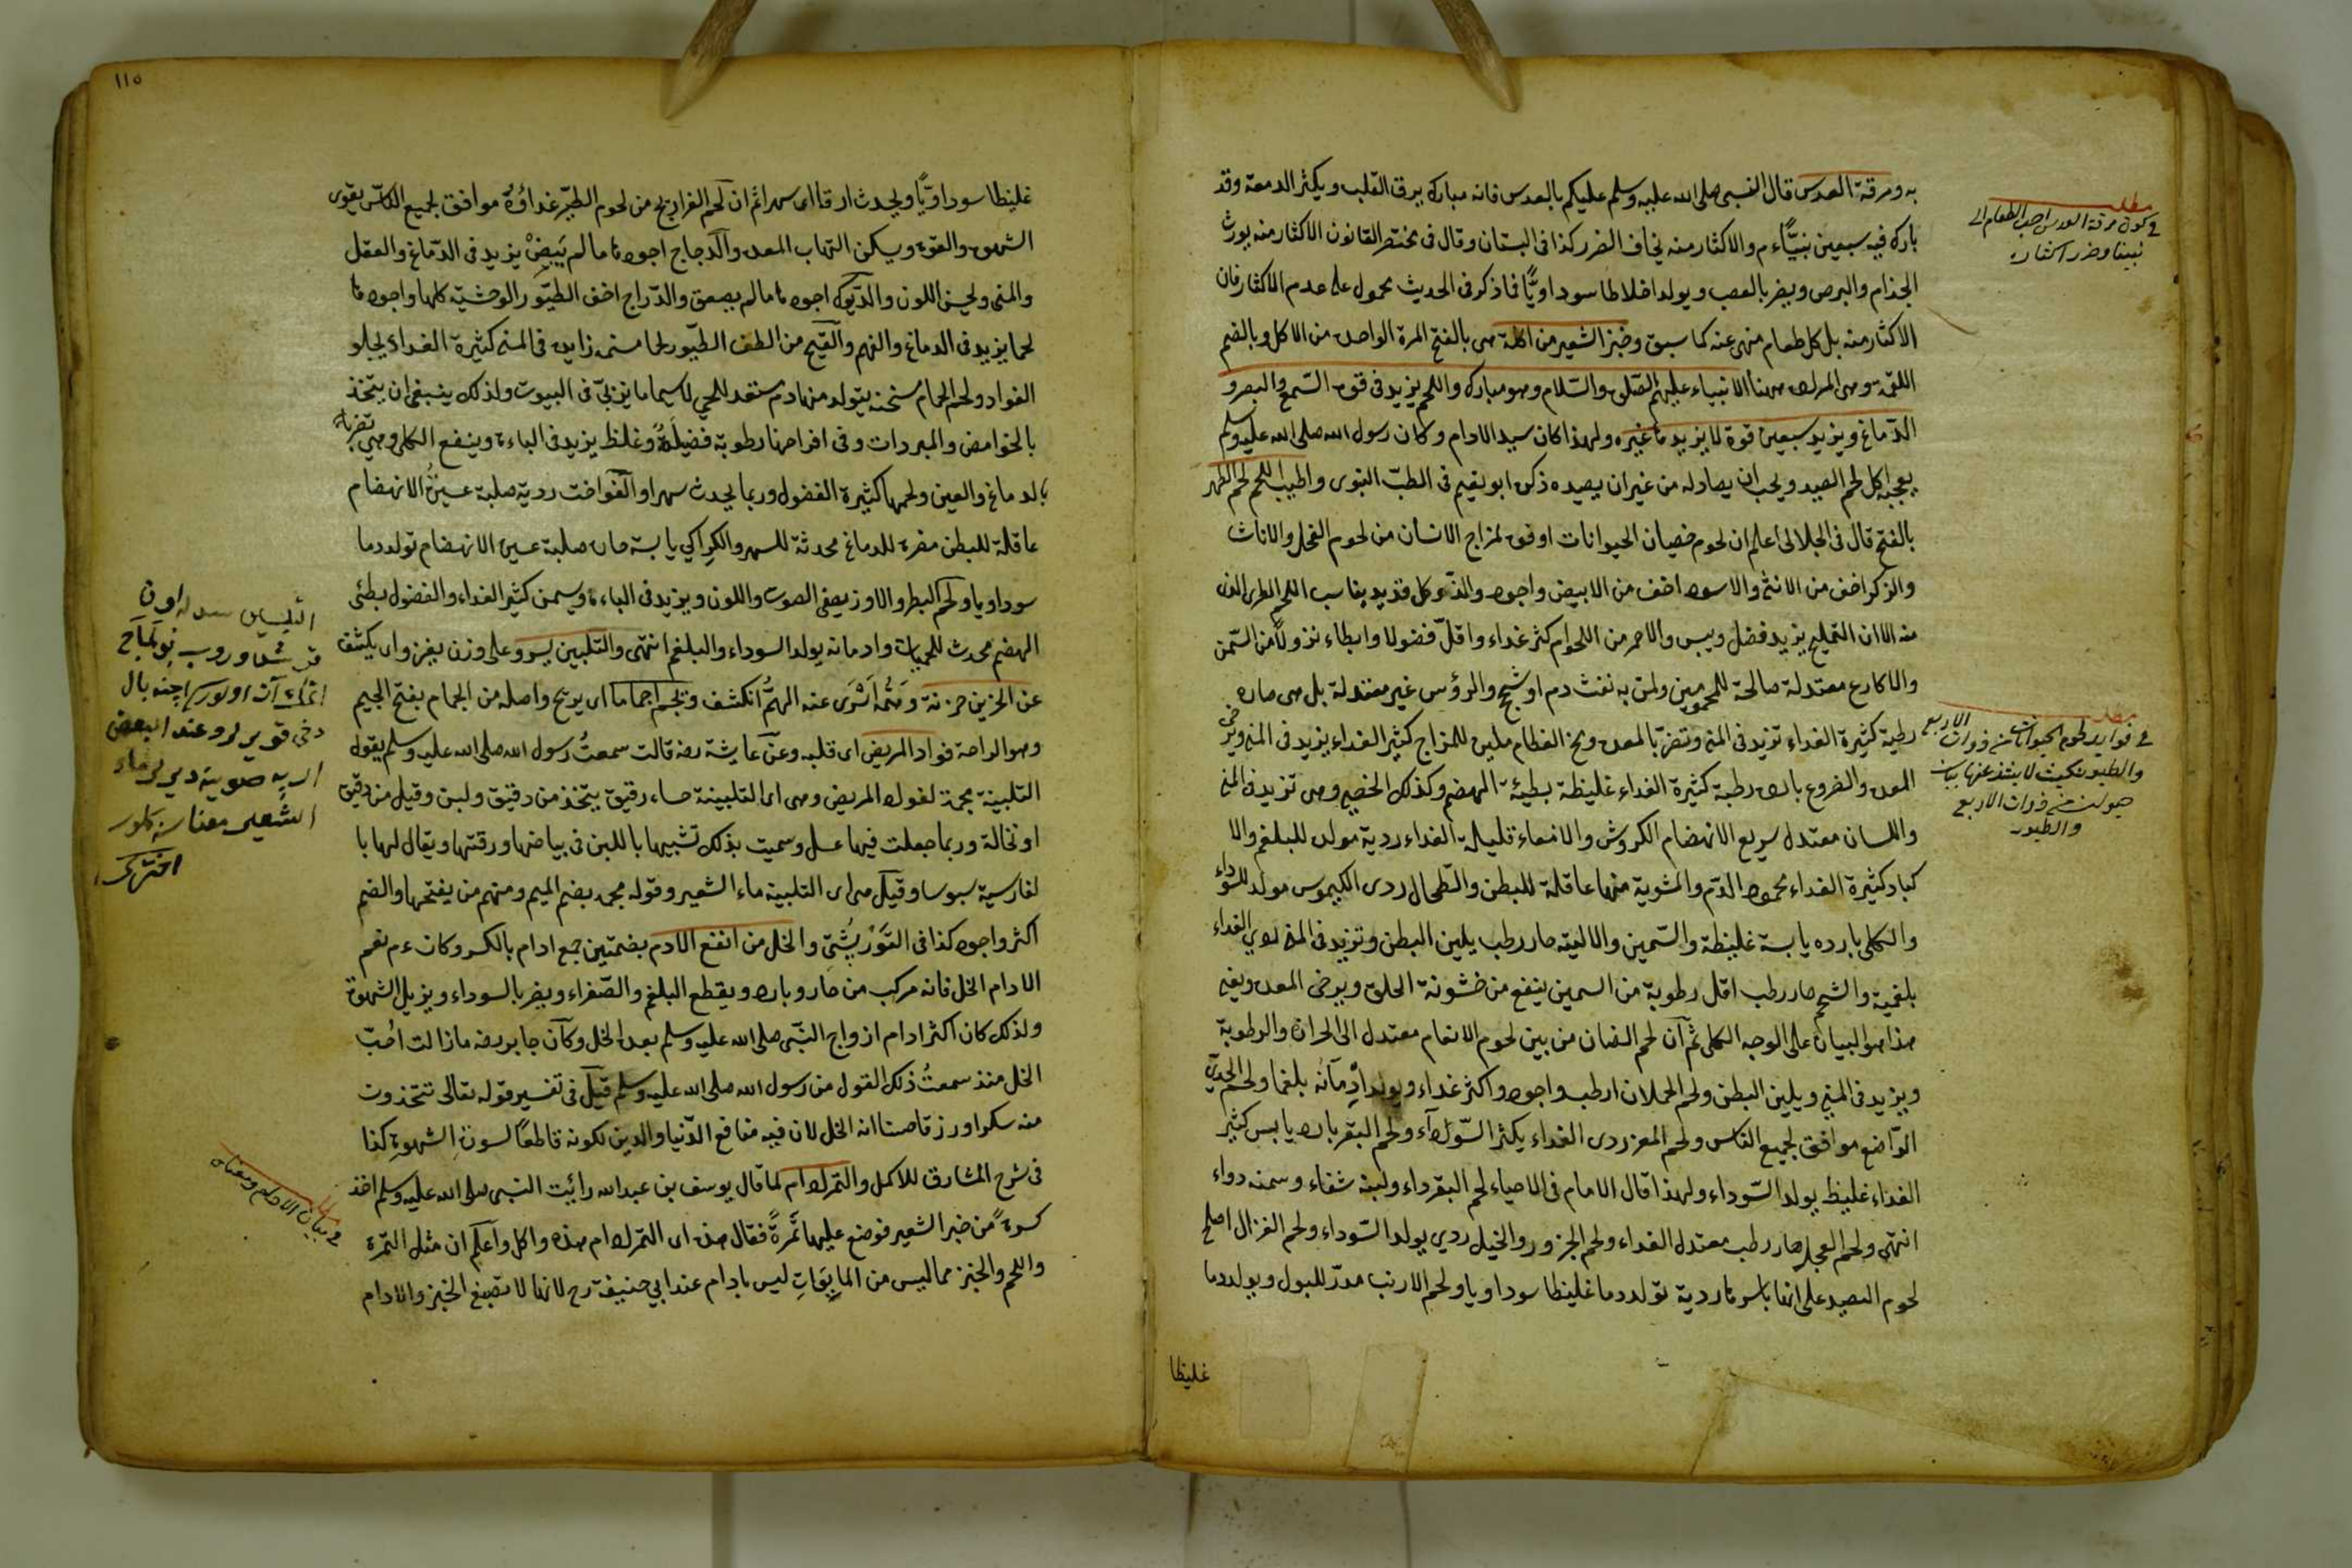 به ومرقة العدس قال النبى صلى الله عليه وسلم عليكم بالعدس فانه مبارك يرق القلب ويكثر الدمعة وقد
بارك فيه سبعين نبيًّا ءم والاكثار منه يخاف الضرر كذا فى البستان وقال فى مختصر القانون الاكثار منه يورث
الجذام والبرص ويضر بالعصب ويولد اخلاطا سوداويًّا فما ذكر فى الحديث محمول على عدم الاكثار فان
الاكثار منه بل كل طعام منهى عنه كما سبق وخبز الشعير من اكلة هى بالفتح المرة الواحدة من الاكل وبالضم
اللقمة وهى المراد ههنا الانبياء عليهم الصلوة والسلام وهو مبارك واللحم يزيد فى قوة السمع والبصر و
الدماغ ويزيد سبعين قوة لا يزيد ما غيره ولهذا كان سيد الادام وكان رسول الله صلى الله عليه وسلم
يعجبه اكل لحم الصيد ويحب ان يصاد له من غير ان يصيده ذكره ابو نعيم فى الطب النبوى واطيب اللحم لحم الظهر
بالفتح قال فى الجلالى اعلم ان لحوم خصيان الحيوانات اوفق لمزاج الانسان من لحوم الفحل والاناث
والذكر اخف من الانثى والاسود اخف من الابيض واجود والذ وكل قديد يناسب اللحم الطرى الذى
منه الا ان التمليح يزيد فضل ويبس والاحمر من اللحوم اكثر غداء واقل فضولا وابطاء نزولا من السمن
والاكارع معتدلة صالحة للمحمومين ولمن به نفث دم او شج والرؤس غير معتدلة بل هى حارة
رطبة كثيرة الغداء تزيد فى المنى وتضر بالمعدة ومخ العظام ملين للمزاج كثير الغداء يزيد فى المنى ويرخى
المعدة والضروع باردة رطبة كثيرة الغداء غليظة بطيئة الهضم وكذلك الخصية وهى تزيد فى المنى
واللسان معتدل سريع الانهضام الكروش والامعاء قليلة الغداء ردية مولدة للبلغم والا
كباد كثيرة الغداء محمودة الدم والمشوية منها عاقلة للبطن والطحال ردى الكيموس مولد للسوداء
والكلى بارده يابسة غليظة والسمين والالية حار رطب يلين البطن وتزيد فى المنى ردى الغداء
بلغمية والشحم حار رطب اقل رطوبة من السمين ينفع من خشونة الحلق ويرخى المعدة
هذا هو البيان على الوجه الكلى ثم ان لحم الضان من بين لحوم الانعام معتدل الى الحرارة والرطوبة
ويزيد فى المنى ويلين البطن ولحم الحملان ارطب واجود واكثر غداء ويولد ادمانه بلغما ولحم الجدى
الراضع موافق لجميع الناس ولحم المعز ردى الغداء يكثر السوداء ولحم البقر بارد يابس كثير
الغداء غليظ يولد السوداء ولهذا قال الامام فى الاحياء لحم البقر داء ولبنه شفاء وسمنه دواء
انتهى ولحم العجل حار رطب معتدل الغداء ولحم الجزور والخيل ردى يولد السوداء ولحم الغزال اصلح
لحوم الصيد على انها باسرها ردية تولد دما غليظا سوداويا ولحم الارنب مدر للبول ويولد دما
غليظا
مطلب
فى كون مرقة العدس احب الطعام الى
نبينا وضرر اكثاره
مطلب
فى فوايد لحوم الحيوانات من ذوات الاربع
والطيور بحيث لا يشذ عنها بيان
حيوان من ذوات الاربع
والطيور
١١٥
غليظا سوداويًّا ويحدث ارقا اى سهرا ثم ان لحم الفراريج من لحوم الطير غداؤه موافق لجميع الناس يقوى
الشهوة والقوة ويسكن التهاب المعدة والدجاج اجوده ما لم يبض يزيد فى الدماغ والعقل
والمنى ويحسن اللون والديوك اجودها ما لم يصعق والدراج اخف الطيور الوحشية كلها واجودها
لحما يزيد فى الدماغ والفهم والقبح من الطف الطيور لحما مسمنة زايدة فى المنى كثيرة الغداء يجلو
الفواد ولحم الحمام مسخنة يتولد منها دم مستعد للحمى لا سيما ما يربى فى البيوت ولذلك ينبغى ان يتخذ
بالحوامض والمبردات وفى افراخها رطوبة فضيلة وغلظ يزيد فى الباءة وينفع الكلى وهى تضر
بالدماغ والعين ولحمها كثيرة الفضول وربما يحدث سهرا والفواخت ردية صلبة عسرة الانهضام
عاقلة للبطن مضرة للدماغ محدثة للسهر والكراكى يابسة حارة صلبة عسرة الانهضام تولد دما
سوداويا ولحم البط والاوز يصفى الصوت واللون ويزيد فى الباءة ويسمن كثير الغداء والفضول بطئى
الهضم محدث للحميات وادمانه يولد السوداء والبلغم انتهى والتلبين يسرو على وزن يغزو اى يكشف
عن الحزين حزنه ومنه انسرى عنه الهم انكشف وتجم اجماما اى يريح واصله من الجمام بفتح الجيم
وهو الراحة فواد المريض اى قلبه وعن عايشة رضه قالت سمعت رسول الله صلى الله عليه وسلم يقول
التلبينة مجمة لفواد المريض وهى اى التلبينة حساء رقيق يتخذ من دقيق ولبن وقيل من دقيق
او نخالة وربما جعلت فيها عسل وسميت بذلك تشبيها باللبن فى بياضها ورقتها ويقال لها با
لفارسية سبوسا وقيل هى اى التلبينة ماء الشعير وقوله مجمة بضم الميم ومنهم من يفتحها والضم
اكثر واجود كذا فى التوربشتى والخل من انفع الادم بضمتين جمع ادام بالكسر وكان ءم نعم
الادام الخل فانه مركب من حار وبارد ويقطع البلغم والصفراء ويضر بالسوداء ويزيل الشهوة
ولذلك كان اكثر ادام ازواج النبى صلى الله عليه وسلم بعده الخل وكان جابر رضه ما زالت احب
الخل منذ سمعت ذلك القول من رسول الله صلى الله عليه وسلم قيل فى تفسير قوله تعالى تتخذون
منه سكرا ورزقا حسنا انه الخل لان فيه منافع الدنيا والدين لكونه قاطعا لسورة الشهوة كذا
فى شرح المشارق للاكمل والتمر ادام لما قال يوسف بن عبد الله رايت النبى صلى الله عليه وسلم اخذ
كسرة من خبز الشعير فوضع عليها تمرة فقال هذه اى التمر ادام هذه واكل واعلم ان مثل التمرة
واللحم والخبز مما ليس من المايعات ليس بادام عند ابي حنيفة رح لانها لا تصبغ الخبز والادام
الشعير معناسنه كلور
اختركى
فى بيان الادام ومعناه